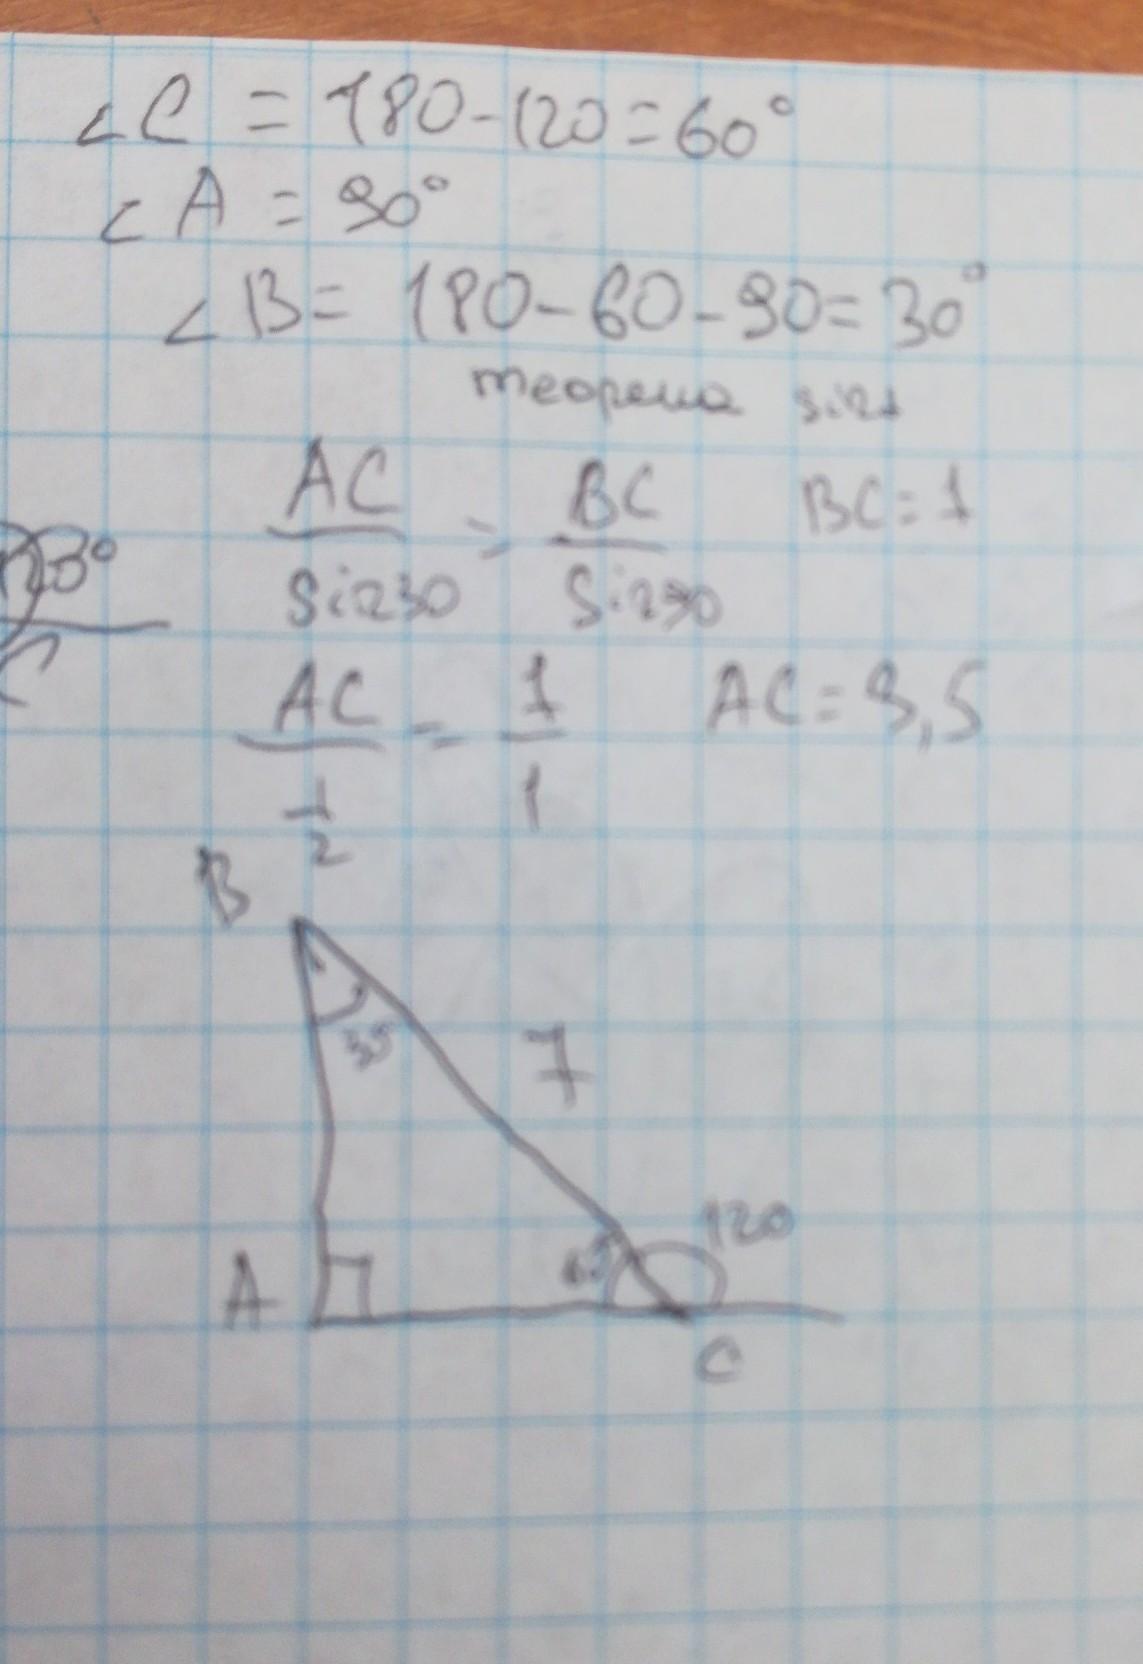 ∠C = 180-120=60°
∠A = 90°
∠B= 180-60-90=30°
теорема sin
AC/sin30 = BC/sin90 BC=7
AC/(1/2) = 7/1 AC=3,5
B
30
7
120
A
60
C